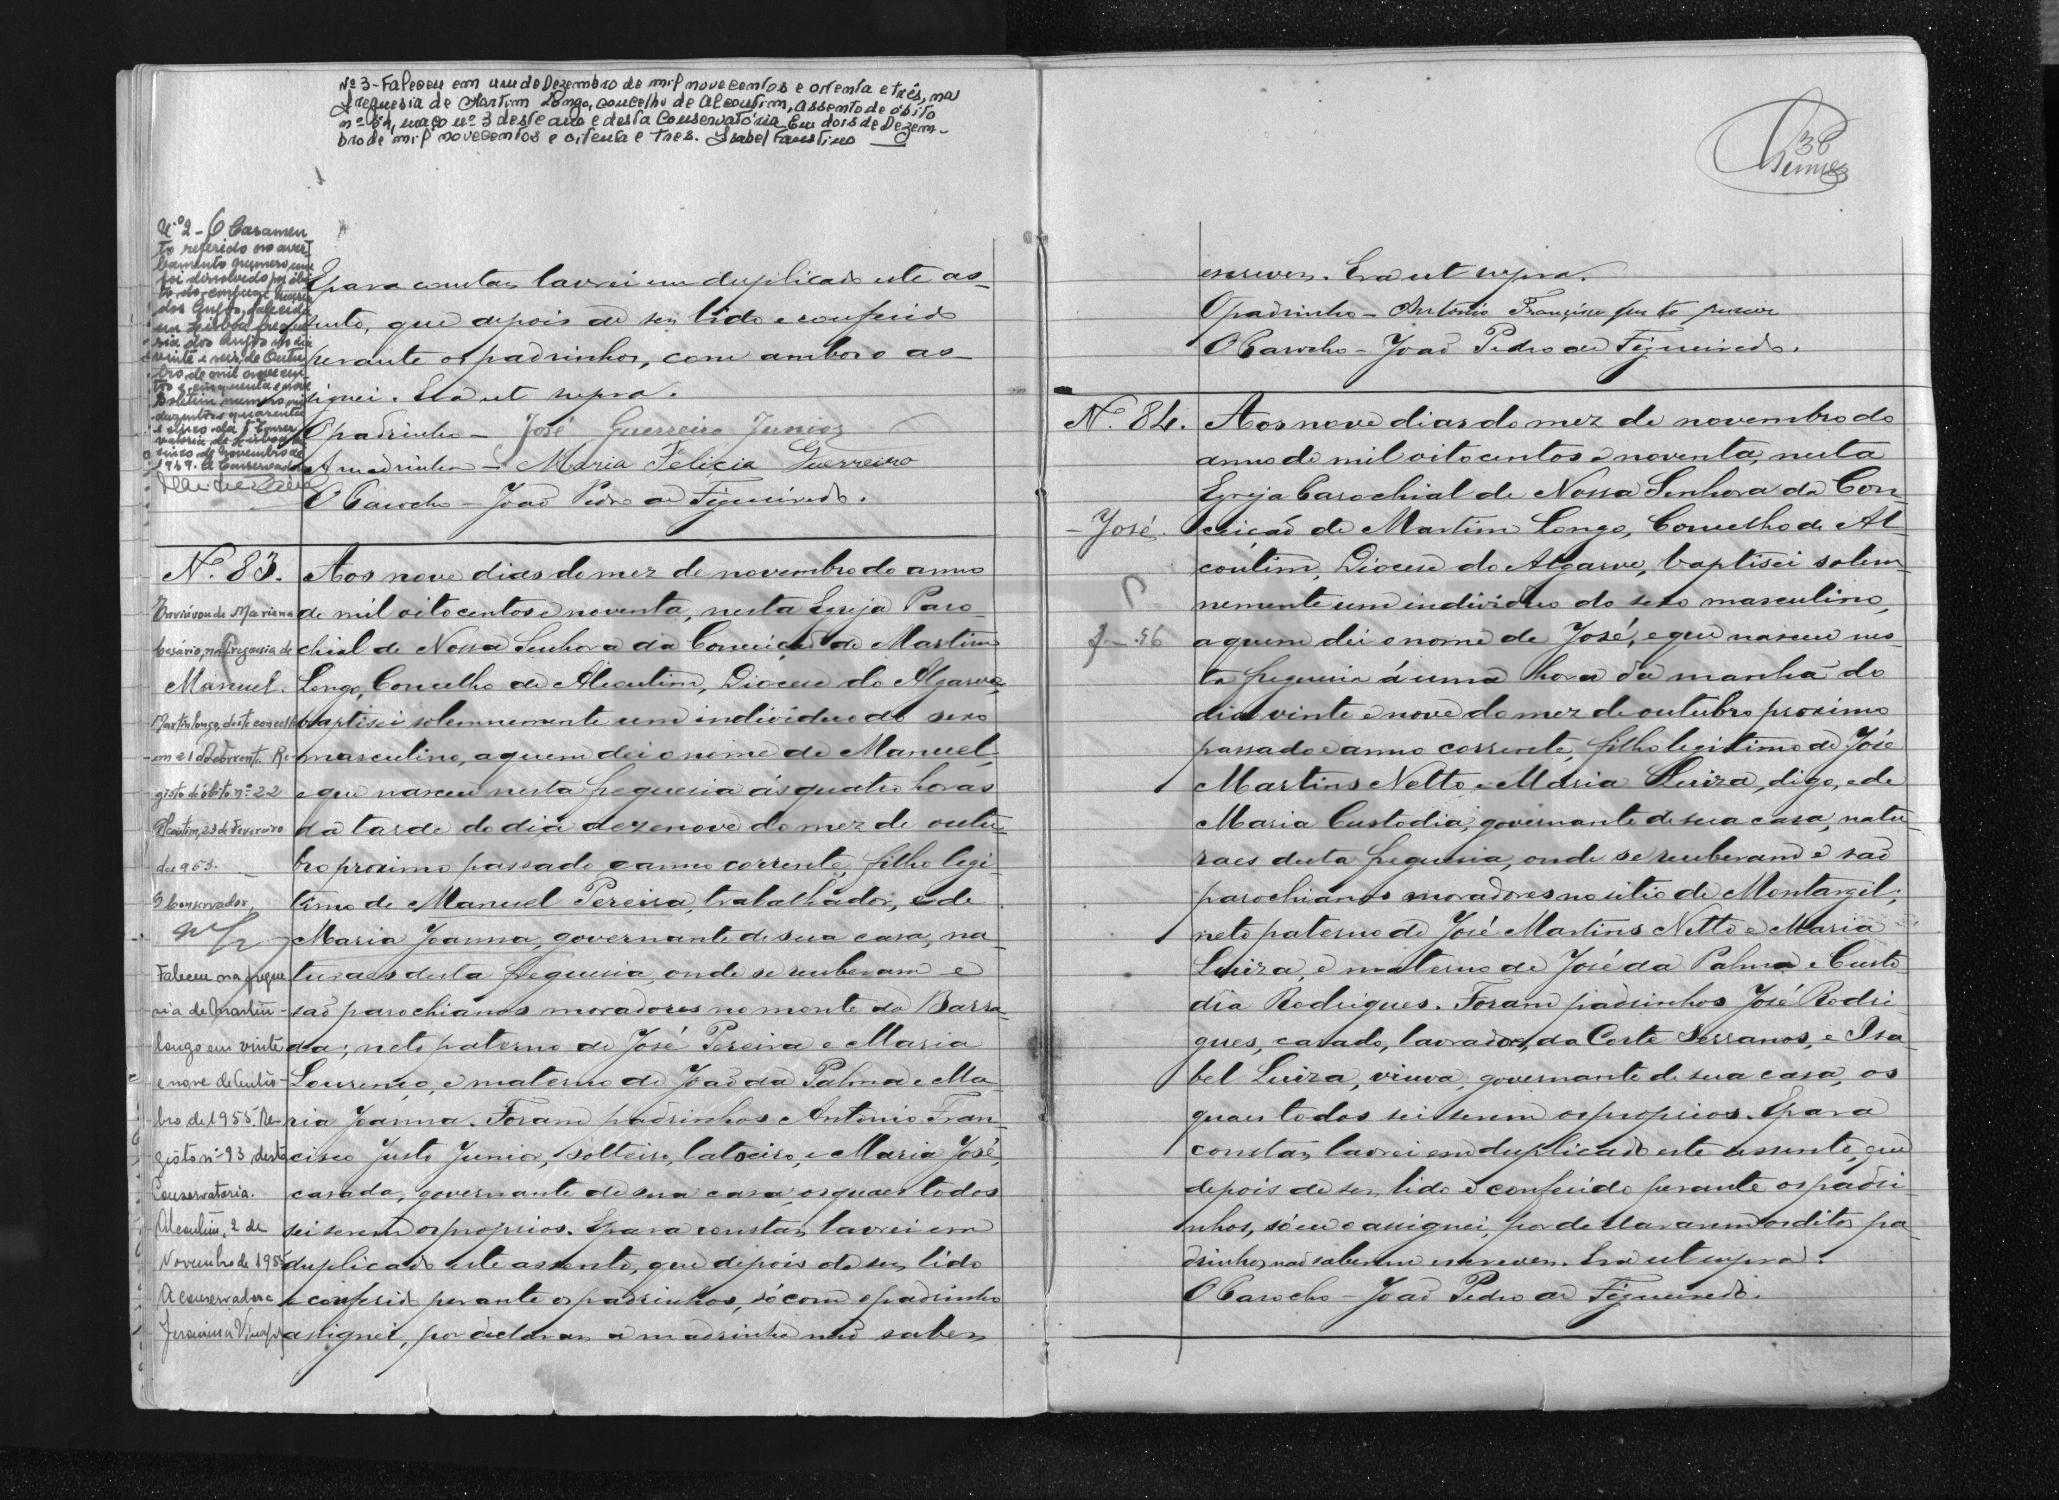 Nº 3 - Faleceu em um de Dezembro de mil novecentos e oitenta e três, na
freguesia de Martim Longo, concelho de Alcoutim, assento de óbito
nº 54, maço nº 3 deste ano e desta Conservatória. Em dois de Dezem-
bro de mil novecentos e oitenta e tres. Isabel Faustino
N.º 2 - O Casamen
to referido no aver
bamento numero um
foi dissolvido por óbi
to do conjuge
dos Anjos, falecida
em Lisboa, fregue
sia dos Anjos no dia
vinte e seis de Outu
bro de mil novecen
tos e cinquenta e nove
Boletim numero
duzentos quarenta
e cinco da Conser
vatoria de Lisboa
cinco de Novembro de
O Conservador
E para constar lavrei em duplicado este as-
sento, que depois de ser lido e conferido
perante os padrinhos, com ambos o as-
signei. Era ut supra.
O padrinho - José Guerreiro Junior
A madrinha - Maria Felicia Guerreiro
O Parocho - João Pedro de Figueiredo.
N.º 83.
Manuel.
Enviuvou de Mariana
Cesário, na freguesia de
Martinlongo, deste concelho
em 21 do corrente. Re-
gisto de óbito nº 22
Alcoutim, 23 de Fevereiro
de 1953.
O Conservador,
Faleceu na fregue
sia de Martin-
longo em vinte
e nove de Outu-
bro de 1955. Re-
gisto nº 93 desta
Conservatoria.
Alcoutim, 2 de
Novembro de 1955
A conservadora
Aos nove dias do mez de novembro do anno
de mil oitocentos e noventa, nesta Egreja Paro-
chial de Nossa Senhora da Conceição de Martim
Longo, Concelho de Alcoutim, Diocese do Algarve,
baptisei solemnemente um individuo do sexo
masculino, a quem dei o nome de Manuel,
e que nasceu nesta freguesia ás quatro horas
da tarde do dia dezenove do mez de outu-
bro proximo passado e anno corrente, filho legi-
timo de Manuel Pereira, trabalhador, e de
Maria Joanna, governante de sua casa, na-
turaes desta freguesia, onde se receberam e
são parochianos moradores no monte da Barra-
da; neto paterno de José Pereira e Maria
Lourenço, e materno de João da Palma e Ma-
ria Joanna. Foram padrinhos Antonio Fran-
cisco Justo Junior, solteiro, latoeiro, e Maria José,
casada, governante de sua casa, os quaes todos
sei serem os proprios. E para constar lavrei em
duplicado este assento, que depois de ser lido
e conferido perante os padrinhos, só com o padrinho
assignei, por declarar a madrinha não saber
36
escrever. Era ut supra.
O padrinho - Antonio Francisco Justo Junior
O Parocho - João Pedro de Figueiredo.
N.º 84.
- José.
Aos nove dias do mez de novembro do
anno de mil oitocentos e noventa, nesta
Egreja Parochial de Nossa Senhora da Con-
ceição de Martim Longo, Concelho de Al-
coutim, Diocese do Algarve, baptisei solem-
nemente um individuo do sexo masculino,
a quem dei o nome de José, e que nasceu nes-
ta freguesia á uma hora da manhã do
dia vinte e nove do mez de outubro proximo
passado e anno corrente, filho legitimo de José
Martins Netto e Maria Luiza, digo, e de
Maria Custodia, governante de sua casa, natu-
raes desta freguesia, onde se receberam e são
parochianos moradores no sitio de Montargil;
neto paterno de José Martins Netto e Maria
Luiza, e materno de José da Palma e Custo-
dia Rodrigues. Foram padrinhos José Rodri-
gues, casado, lavrador, da Corte Serranos, e Isa-
bel Luiza, viuva, governante de sua casa, os
quaes todos sei serem os proprios. E para
constar lavrei em duplicado este assento, que
depois de ser lido e conferido perante os padri-
nhos, só eu o assignei, por declararem os ditos pa-
drinhos não saberem escrever. Era ut supra.
O Parocho - João Pedro de Figueiredo.